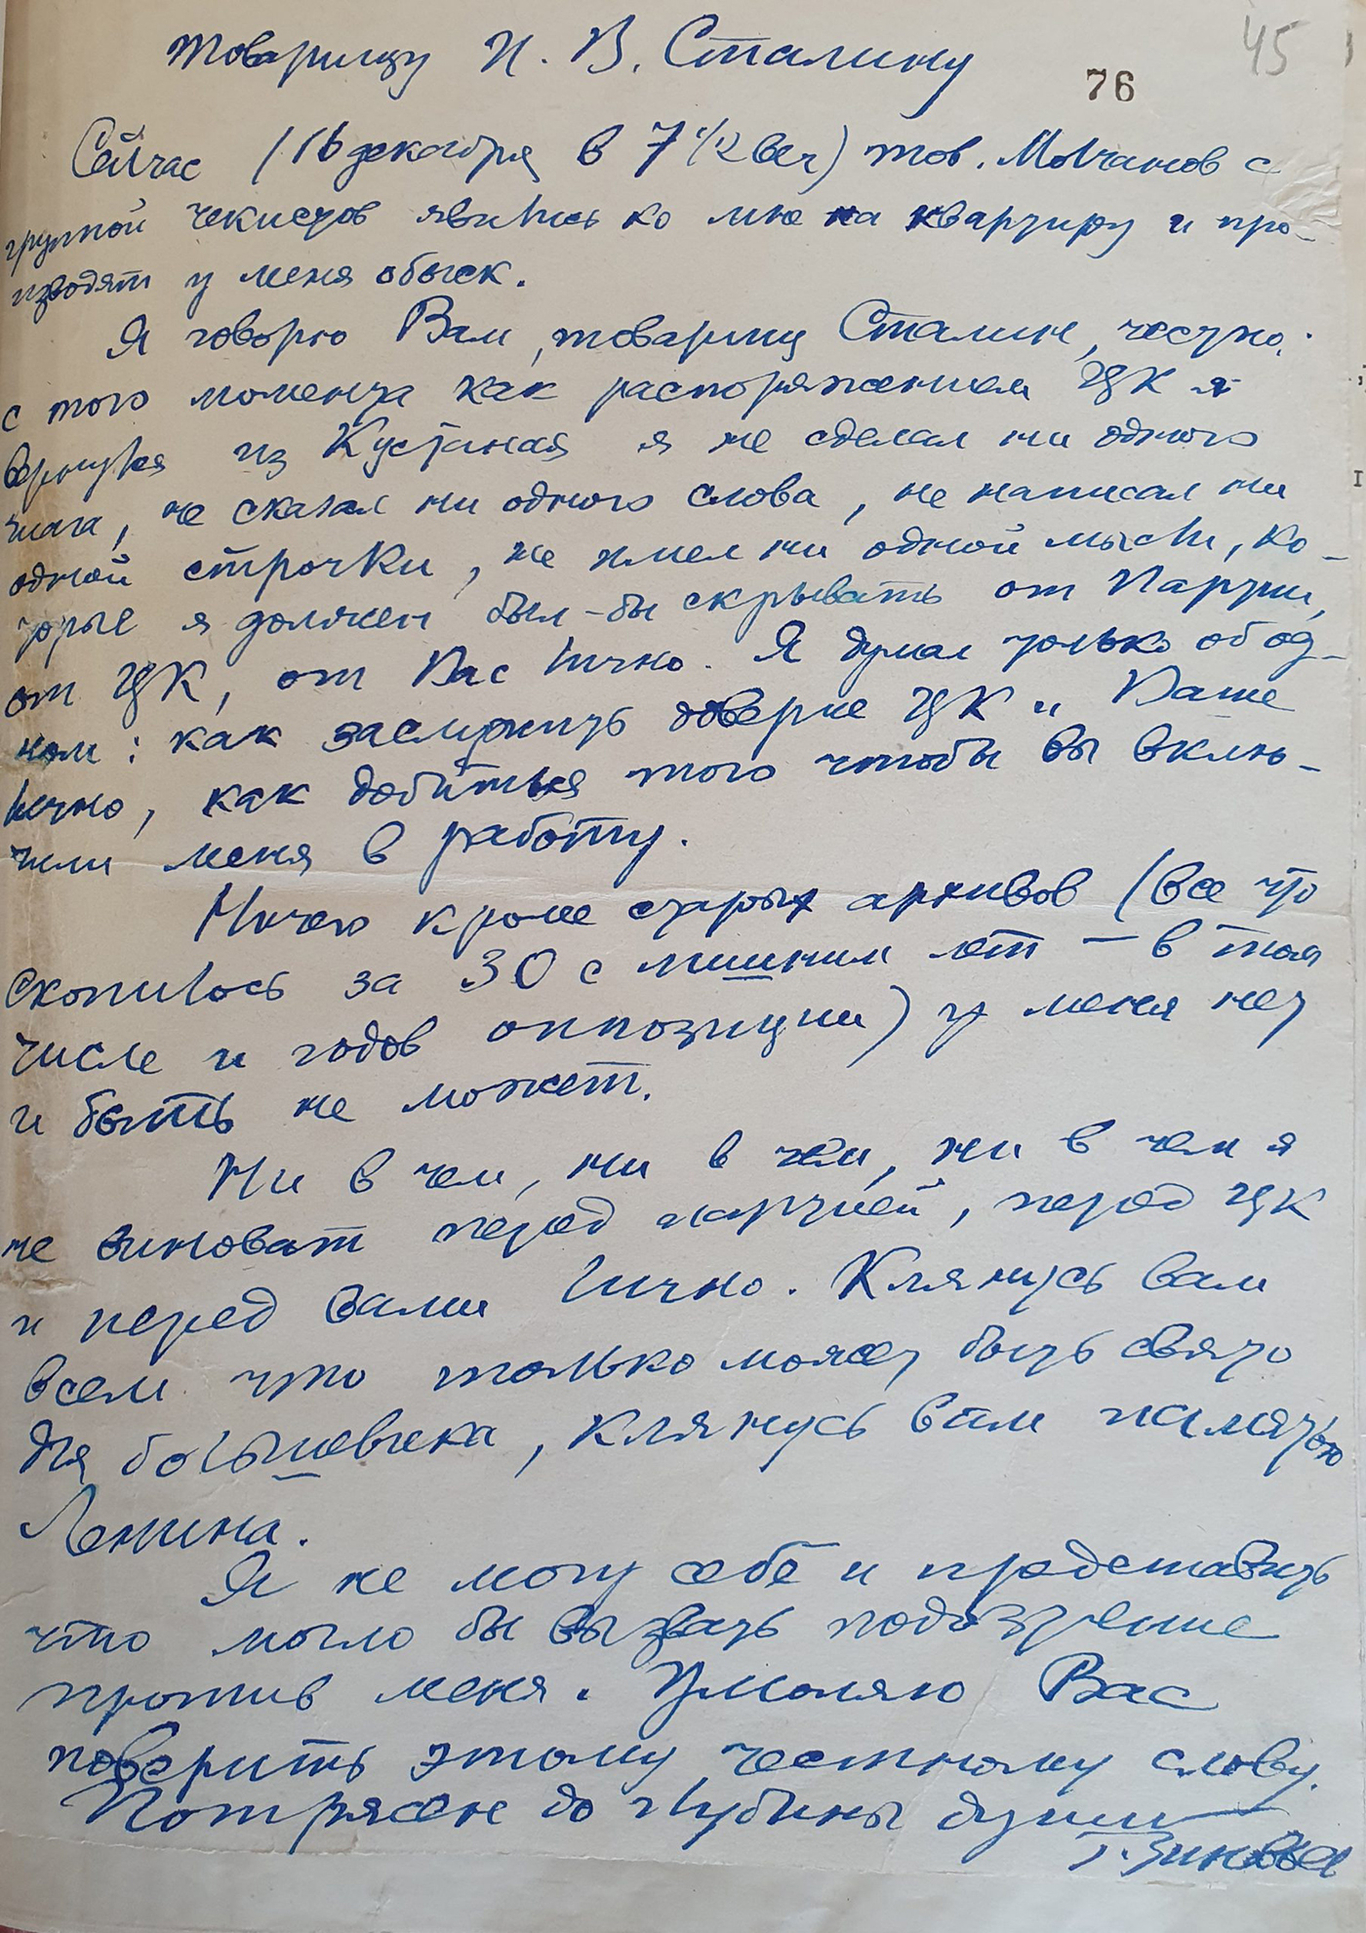 45
товарищу И. В. Сталину
76
Сейчас (16 декабря в 7 1/2 веч) тов. Молчанов с
группой чекистов явились ко мне на квартиру и про-
изводят у меня обыск.
Я говорю Вам, товарищ Сталин, честно:
с того момента как распоряжением ЦК я
вернулся из Кустаная я не сделал ни одного
шага, не сказал ни одного слова, не написал ни
одной строчки, не имел ни одной мысли, ко-
торые я должен был-бы скрывать от Партии,
от ЦК, от Вас лично. Я думал только об од-
ном: как заслужить доверие ЦК и Ваше
лично, как добиться того чтобы вы вклю-
чили меня в работу.
Ничего кроме старых архивов (все что
скопилось за 30 с лишним лет – в том
числе и годов оппозиции) у меня нет
и быть не может.
Ни в чем, ни в чем, ни в чем я
не виноват перед партией, перед ЦК
и перед вами лично. Клянусь вам
всем что только может быть свято
для большевика, клянусь вам памятью
Ленина.
Я не могу себе и представить
что могло бы вызвать подозрение
против меня. Умоляю Вас
поверить этому честному слову.
Потрясен до глубины души
Г. Зиновьев